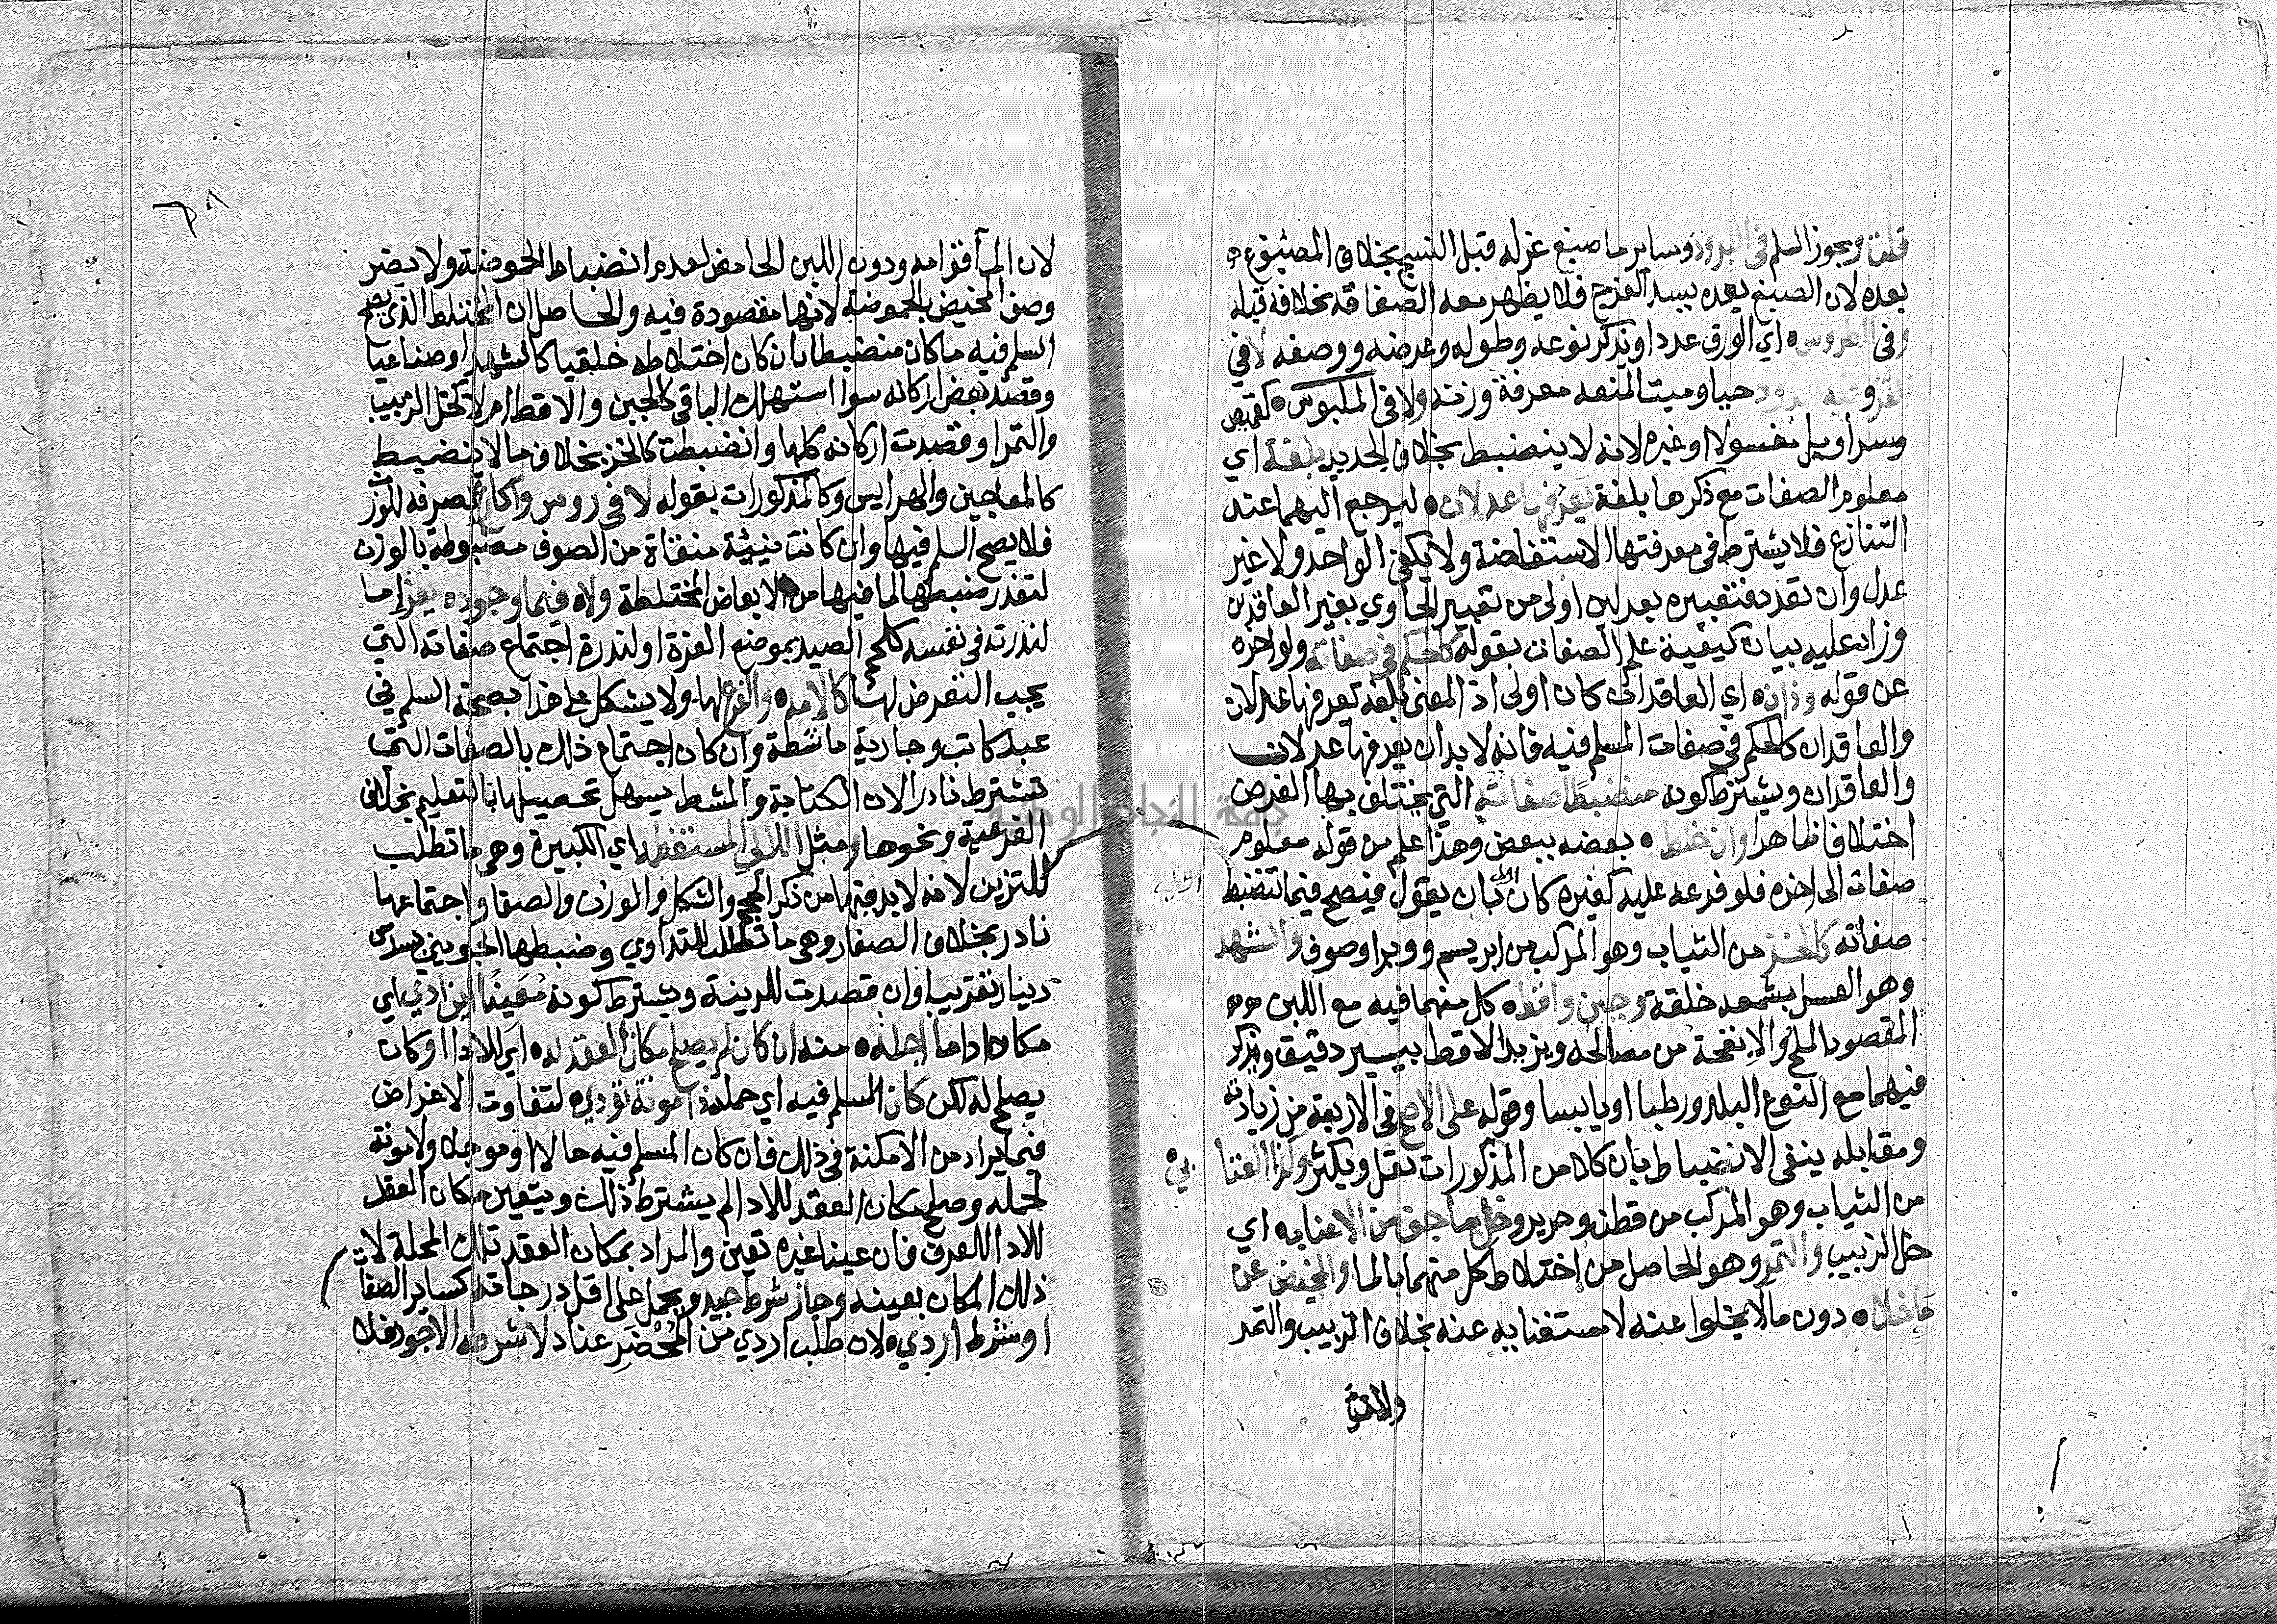 قلت ويجوز السلم في البرود وساير ما صبغ غزله قبل النسج بخلاف المصبوغ
بعده لان الصبغ بعده يسد الفرج فلا يظهر معه الصفاقة بخلافه قبله
وفي الطروس اي الورق عددا ويذكر نوعه وطوله وعرضه ووصفه لا في
القز وفيه الدود حيا وميتا لمنعه معرفة وزنه ولا في الملبوس كقميص
وسراويل مغسولا او غيره لانه لا ينضبط بخلاف الجديد بلغة اي
معلوم الصفات مع ذكرها بلغة يعرفها عدلان ليرجع اليهما عند
التنازع فلا يشترط في معرفتها الاستفاضة ولا يكفي الواحد ولا غير
عدل وان تعدد فتعبيره بعدلين اولى من تعبير الحاوي بغير العاقدين
وزاد عليه بيان كيفية علم الصفات بقوله كالحكم في صفاته ولو اخره
عن قوله وذان اي العاقدان كان اولى اذ المعنى بلغة يعرفها عدلان
والعاقدان كالحكم في صفات المسلم فيه فانه لا بد ان يعرفها عدلان
والعاقدان ويشترط كونه منضبطا صفاته التي يختلف بها الغرض
اختلافا ظاهرا وان خلط بعضه ببعض وهذا علم من قوله معلوم
صفات الى اخره فلو فرعه عليه كغيره كان اولى بان يقول فيصح فيما تنضبط
اولى
صفاته كالخز من الثياب وهو المركب من ابريسم ووبر او صوف والشهد
وهو العسل بشمعه خلقة وجبن واقط كل منهما فيه مع اللبن
المقصود الملح والانفحة من مصالحه ويزيد الاقط بيسير دقيق ويذكر
فيهما مع النوع البلد ورطبا او يابسا وقوله على الاصح في الاربعة من زيادته
ومقابله ينفي الانضباط بان كلا من المذكورات يقل ويكثر وكذا العتا بي
من الثياب وهو المركب من قطن وحرير وخل ما جف من الاعناب اي
خل الزبيب والتمر وهو الحاصل من اختلاط كل منهما بالما والمخيض عن
ما خلا دون ما لا يخلوا عنه لاستغنايه عنه بخلاف الزبيب والتمر
لان الما قوامه ودون اللبن الحامض لعدم انضباط الحموضة ولا يضر
وصف المخيض بالحموضة لانها مقصودة فيه والحاصل ان المختلط الذي يصح
السلم فيه ما كان منضبطا بان كان اختلاطه خلقيا كالشهد او صناعيا
وقصد بعض اركانه سوا استهلك الباقي كالجبن والاقط ام لا كخل الزبيب
والتمر او قصدت اركانه كلها وانضبطت كالخز بخلاف ما لا ينضبط
كالمعاجين والهرايس وكالمذكورات بقوله لا في روس واكارع
فلا يصح السلم فيها وان كانت نيئة منقاة من الصوف مضبوطة بالوزن
لتعذر ضبطها لما فيها من الابعاض المختلطة ولا فيما وجوده يعز اما
لندرته في نفسه كلحم الصيد بموضع العزة او لندرة اجتماع صفاته التي
يجب التعرض لها كالامه والفرع لها ولا يشكل على هذا بصحة السلم في
عبد كاتب وجارية ماشطة وان كان اجتماع ذلك بالصفات التي
تشترط نادرا لان الكتابة والمشط يسهل تحصيلها بالتعليم بخلاف
الفرعية ونحوها ومثل اللالي المستعظم اي الكبيرة وهي ما تطلب
للتزين لانه لا بد فيها من ذكر الحجم والشكل والوزن والصفا واجتماعها
نادر بخلاف الصغار وهي ما تطلب للتداوي وضبطها الجويني بسدس
دينار تقريبا وان قصدت للزينة ويشترط كونه معينا اين ادي اي
مكان ادا ما اجله منه ان كان لم يصلح مكان العقد له اي للادا او كان
يصلح له لكن كان المسلم فيه اي حمله ذا مونة توديه لتفاوت الاغراض
فيما يراد من الامكنة في ذلك فان كان المسلم فيه حالا او موجلا ولا مونة
لحمله وصلح مكان العقد للادا لم يشترط ذلك ويتعين مكان العقد
للادا للعرف فان عينا غيره تعين والمراد بمكان العقد تلك المحلة لا
ذلك المكان بعينه وجاز شرط جيد ويحمل على اقل درجاته كساير الصفا
او شرط اردي لان طلب اردي من المحضر عناد لا شرط الاجود فلا